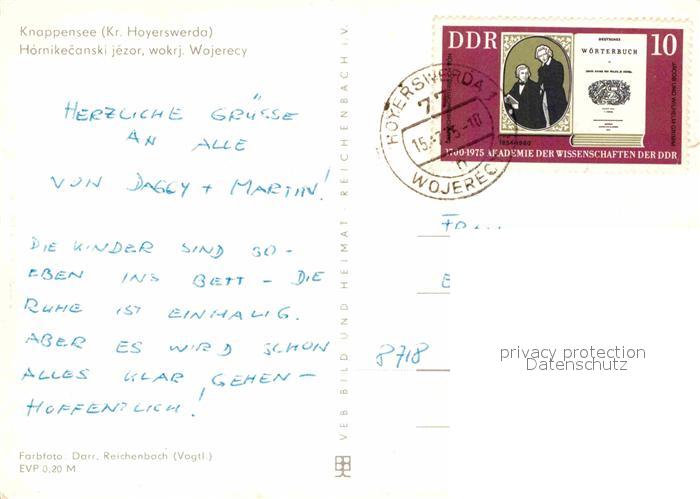 Knappensee (Kr. Hoyerswerda)
Hórnikečanski jězor, wokrj. Wojerecy
HERZLICHE GRÜSSE
AN ALLE
VON DAGGY + MARTIN!
DIE KINDER SIND SO-
EBEN INS BETT - DIE
RUHE IST EINMALIG.
ABER ES WIRD SCHON
ALLES KLAR GEHEN -
HOFFENTLICH!
Farbfoto: Darr, Reichenbach (Vogtl.)
EVP 0,20 M
VEB BILD UND HEIMAT REICHENBACH i.V.
DDR
DEUTSCHES
WÖRTERBUCH
10
JACOB UND WILHELM GRIMM
1854-1960
1700-1975 AKADEMIE DER WISSENSCHAFTEN DER DDR
HOYERSWERDA 1
77
15.-7.75-10
n
WOJERECY
8718
privacy protection
Datenschutz